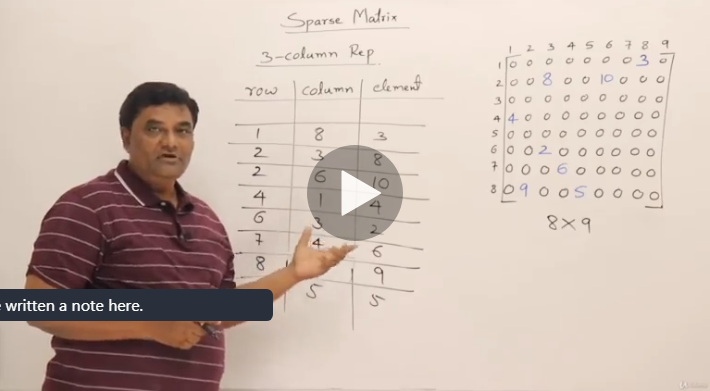 Sparse Matrix
3-column Rep
row column element
1 8 3
2 3 8
2 6 10
4 1 4
6 3 2
7 4 6
8 9
5 5
1 2 3 4 5 6 7 8 9
1 0 0 0 0 0 0 0 3 0
2 0 0 8 0 0 10 0 0 0
3 0 0 0 0 0 0 0 0 0
4 4 0 0 0 0 0 0 0 0
5 0 0 0 0 0 0 0 0 0
6 0 0 2 0 0 0 0 0 0
7 0 0 0 6 0 0 0 0 0
8 0 9 0 0 5 0 0 0 0
8×9
written a note here.